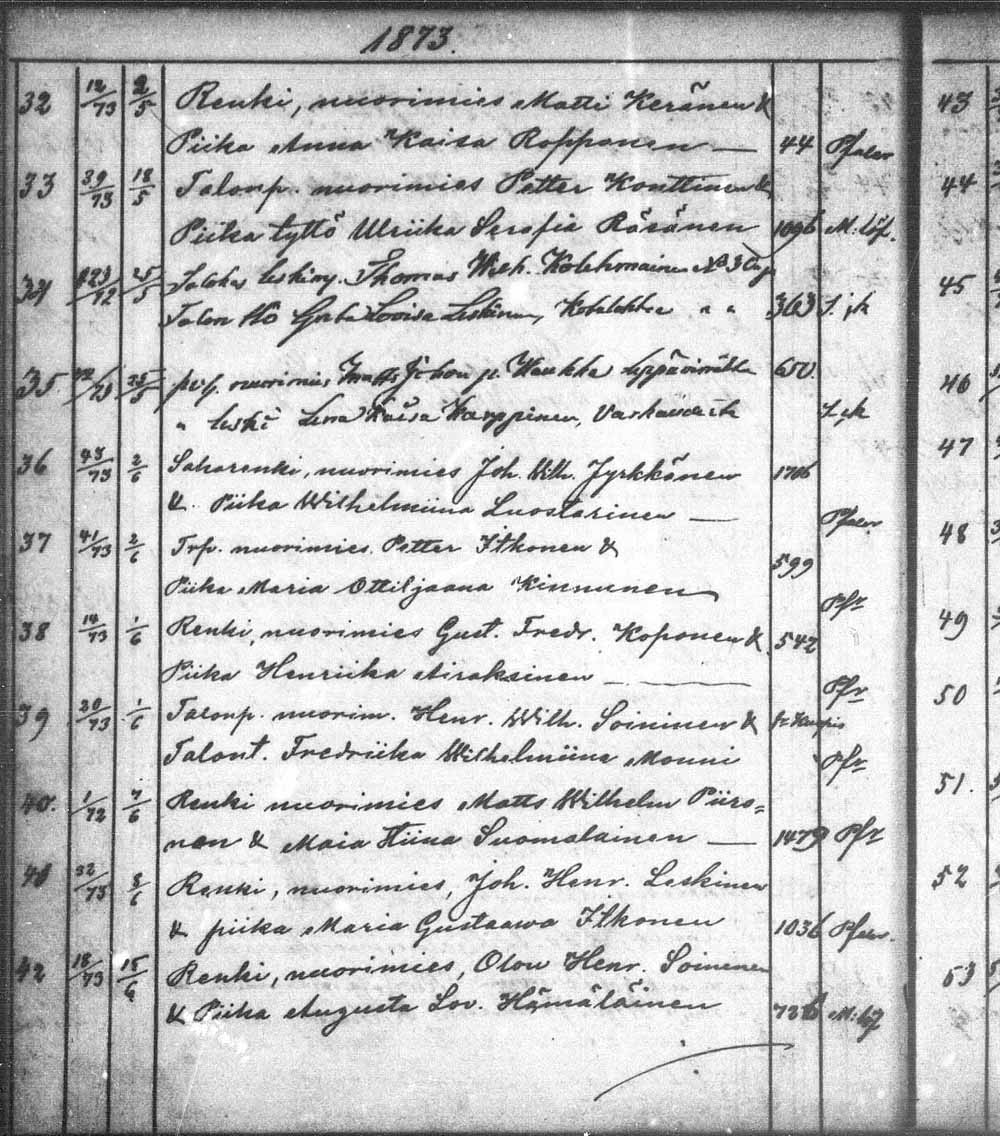 1873.
32 12/73 2/5 Renki, nuorimies Matti Keränen &
Piika Anna Kaisa Ropponen — 44 Pfaler
33 39/73 18/5 Talonp. nuorimies Petter Konttinen &
Piika tyttö Ulriika Serafia Räsänen 1096 M: Löf.
34 25/5 leskimy. Thomas Wilh. Kolehmainen No 3
Talon Lovisa Leskinen, " " 363
35. 25/5 nuorimies Matts Johan p. Haukka Leppävirralta 650.
" leski Lena Kaisa Karppinen,
36 43/73 2/6 Saharenki, nuorimies Joh. Wilh. Jyrkkänen 1706
&. Piika Wilhelmiina Luostarinen — Pfaler
37 41/73 2/6 Trp. nuorimies. Petter Itkonen &
Piika Maria Ottiljaana Kinnunen 599 Pfr
38 14/73 1/6 Renki, nuorimies Gust. Fredr. Koponen & 542
Piika Henriika Airaksinen — Pfr
39 20/73 1/6 Talonp. nuorim. Henr. Wilh. Soininen &
Talont. Fredriika Wilhelmiina Monni Pfr
40. 1/72 7/6 Renki nuorimies Matts Wilhelm Piiro=
nen & Maia Stiina Suomalainen — 1479 Pfr
41 32/73 8/6 Renki, nuorimies, Joh. Henr. Leskinen
& piika Maria Gustaawa Itkonen 1036
42 18/73 15/6 Renki, nuorimies, Olou Henr. Soininen
& Piika Augusta Lov. Hämäläinen M: Löf
43
44
45
46
47
48
49
50
51.
52
53